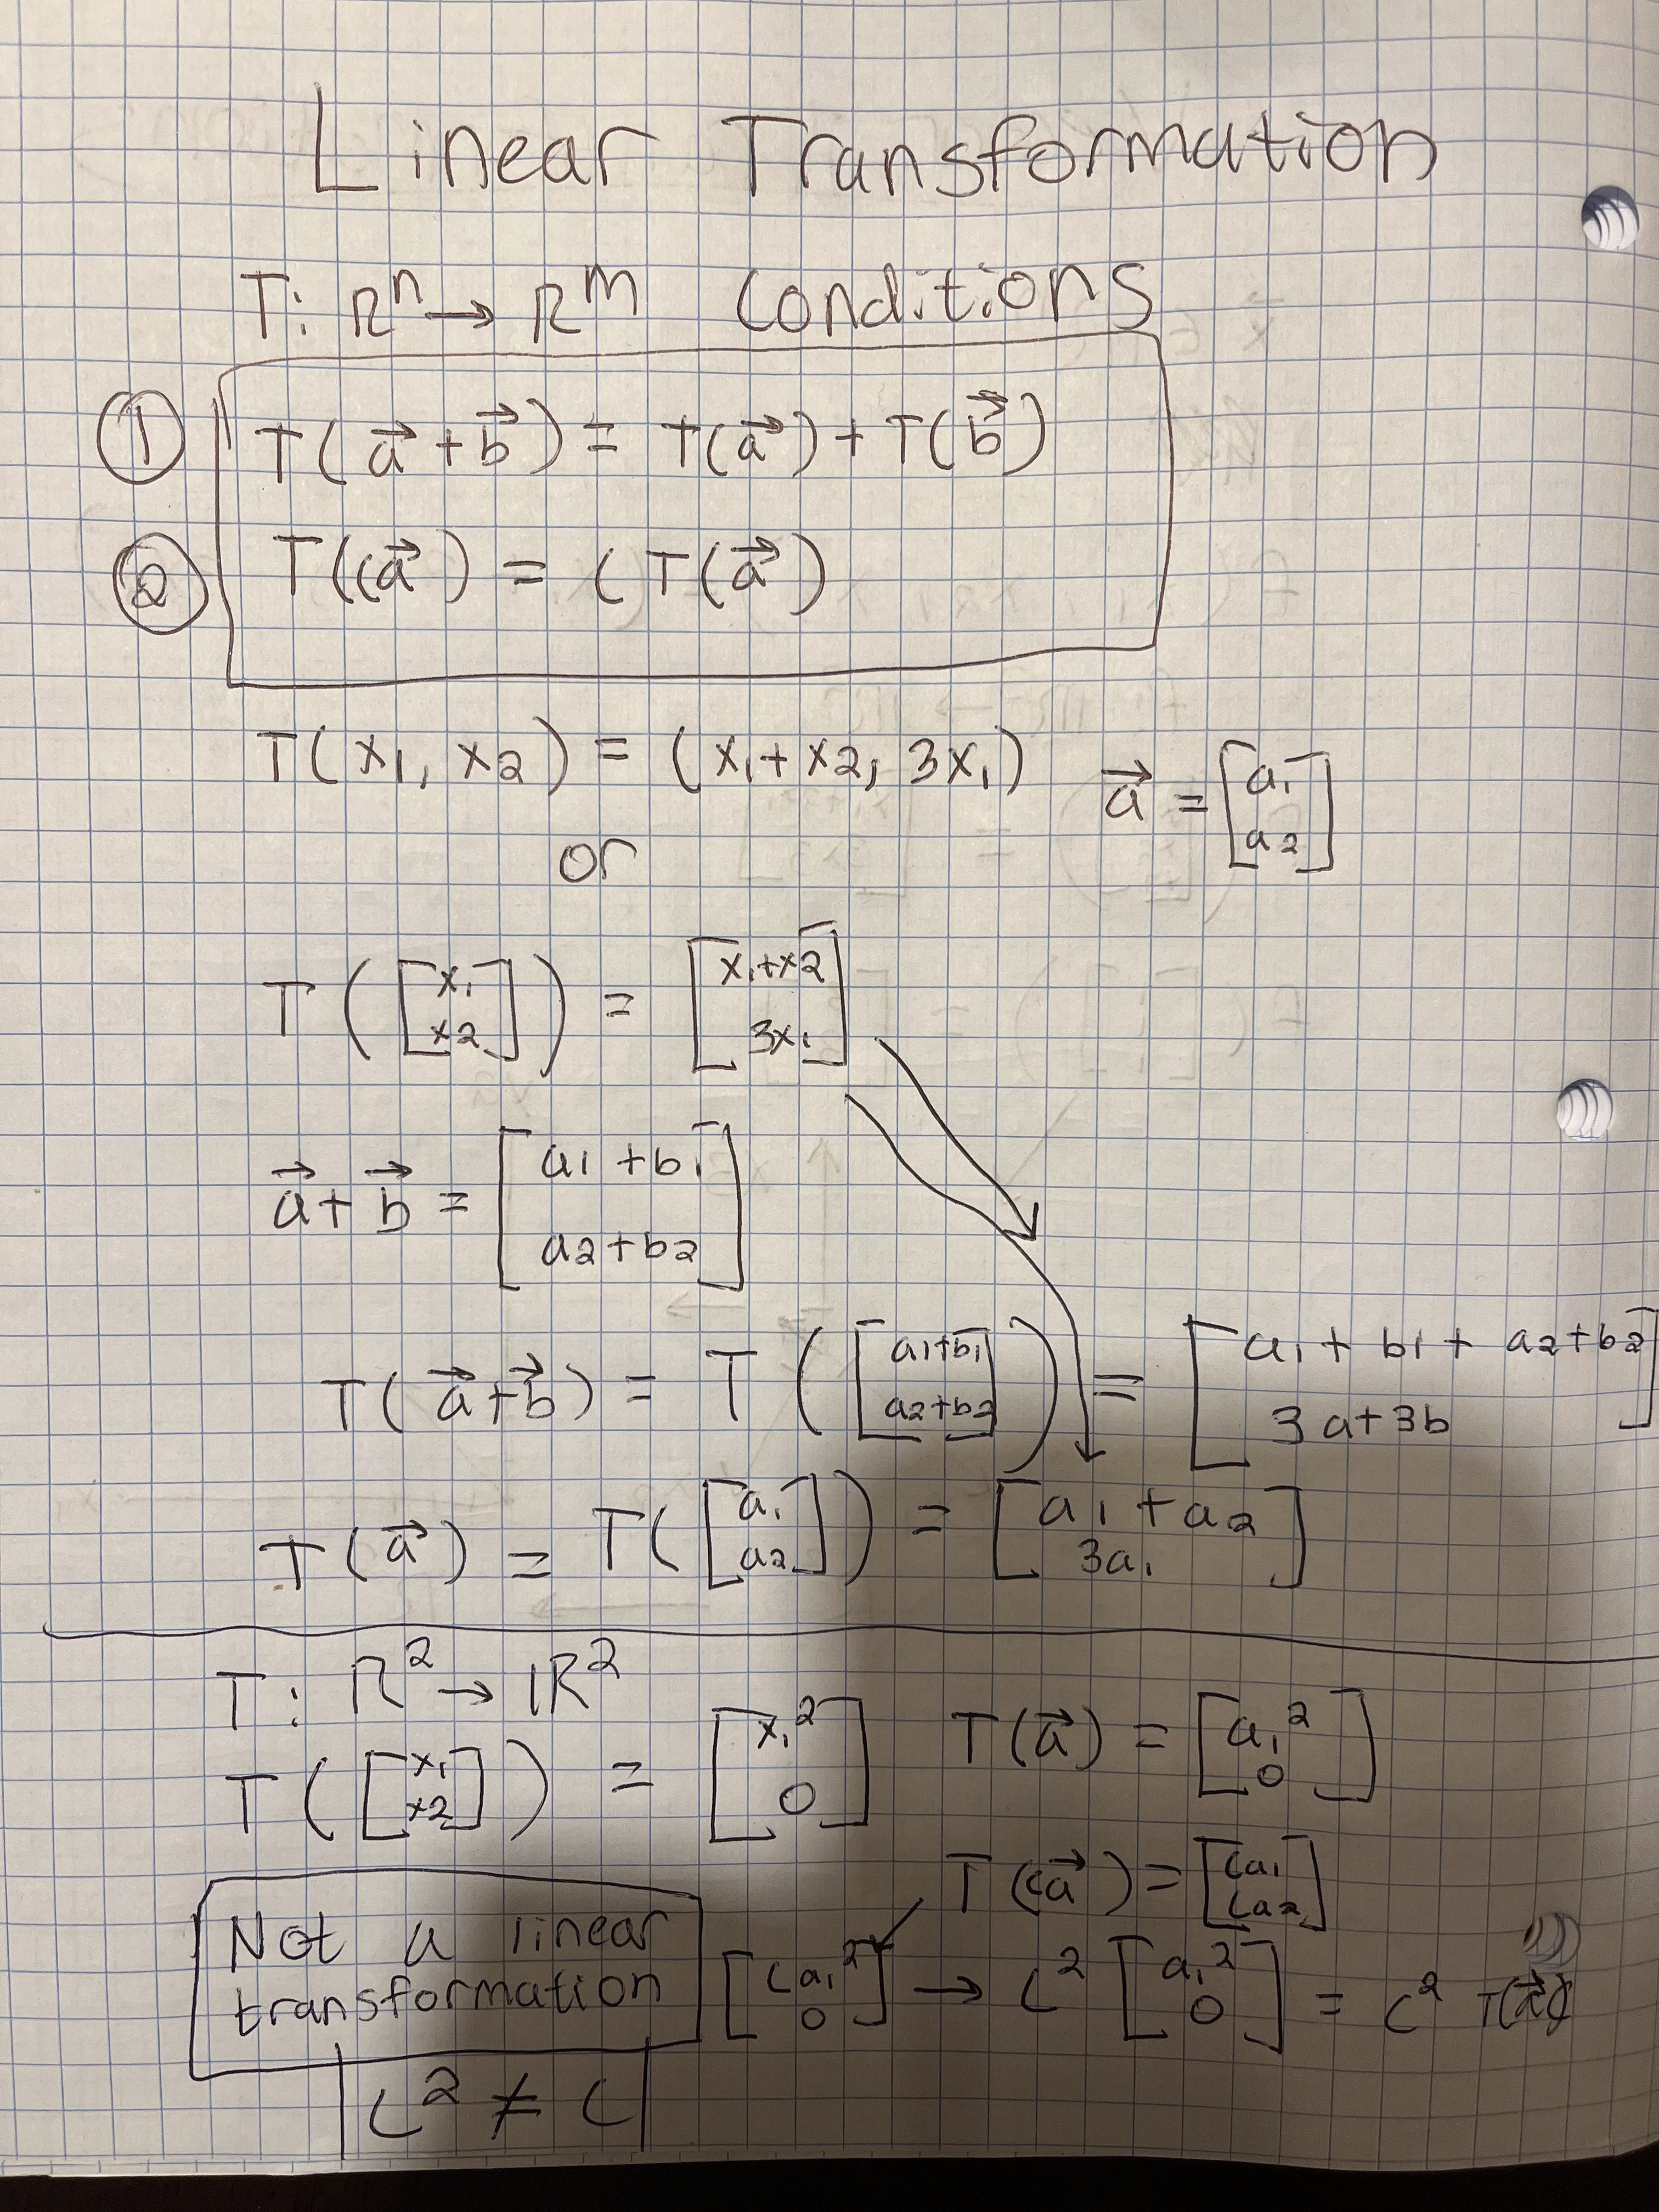 Linear Transformation
T: ℝⁿ → ℝᵐ Conditions
① T(a⃗ + b⃗) = T(a⃗) + T(b⃗)
② T(ca⃗) = c T(a⃗)
T(x₁, x₂) = (x₁ + x₂, 3x₁) a⃗ = [a₁; a₂]
or
T([x₁; x₂]) = [x₁+x₂; 3x₁]
a⃗ + b⃗ = [a₁ + b₁; a₂ + b₂]
T(a⃗ + b⃗) = T([a₁+b₁; a₂+b₂]) = [a₁ + b₁ + a₂ + b₂; 3a + 3b]
T(a⃗) = T([a₁; a₂]) = [a₁ + a₂; 3a₁]
T: ℝ² → ℝ²
T([x₁; x₂]) = [x₁²; 0] T(a⃗) = [a₁²; 0]
T(ca⃗) = [ca₁; ca₂]
Not a linear
transformation
[ca₁²; 0] → c² [a₁²; 0] = c² T(a⃗)
c² ≠ c